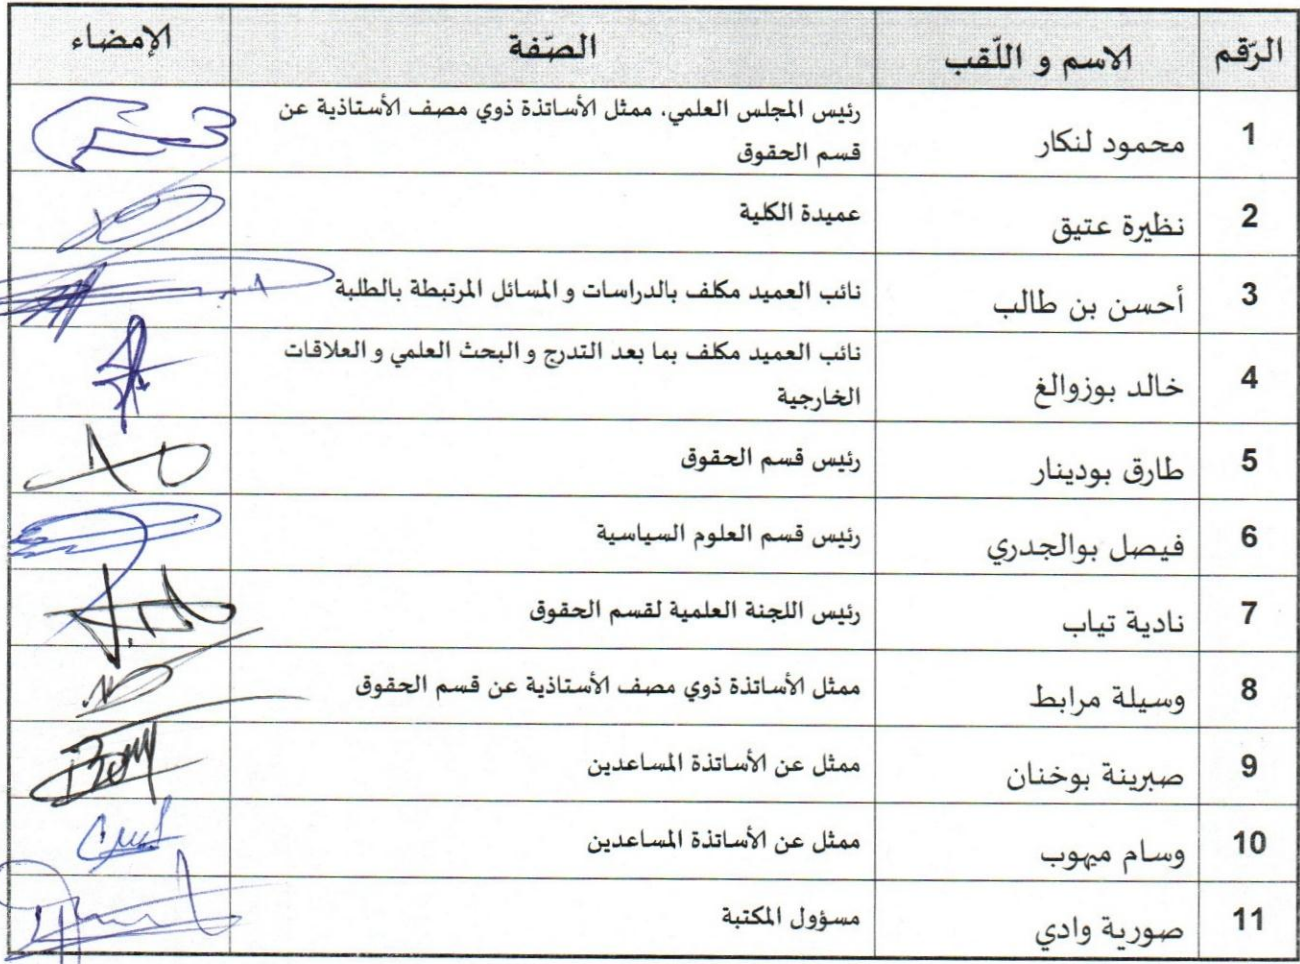 الرّقم الاسم و اللّقب الصّفة الإمضاء
1 محمود لنكار رئيس المجلس العلمي. ممثل الأساتذة ذوي مصف الأستاذية عن
قسم الحقوق
2 نظيرة عتيق عميدة الكلية
3 أحسن بن طالب نائب العميد مكلف بالدراسات و المسائل المرتبطة بالطلبة
4 خالد بوزوالغ نائب العميد مكلف بما بعد التدرج و البحث العلمي و العلاقات
الخارجية
5 طارق بودينار رئيس قسم الحقوق
6 فيصل بوالجدري رئيس قسم العلوم السياسية
7 نادية تياب رئيس اللجنة العلمية لقسم الحقوق
8 وسيلة مرابط ممثل الأساتذة ذوي مصف الأستاذية عن قسم الحقوق
9 صبرينة بوخنان ممثل عن الأساتذة المساعدين
10 وسام ميهوب ممثل عن الأساتذة المساعدين
11 صورية وادي مسؤول المكتبة